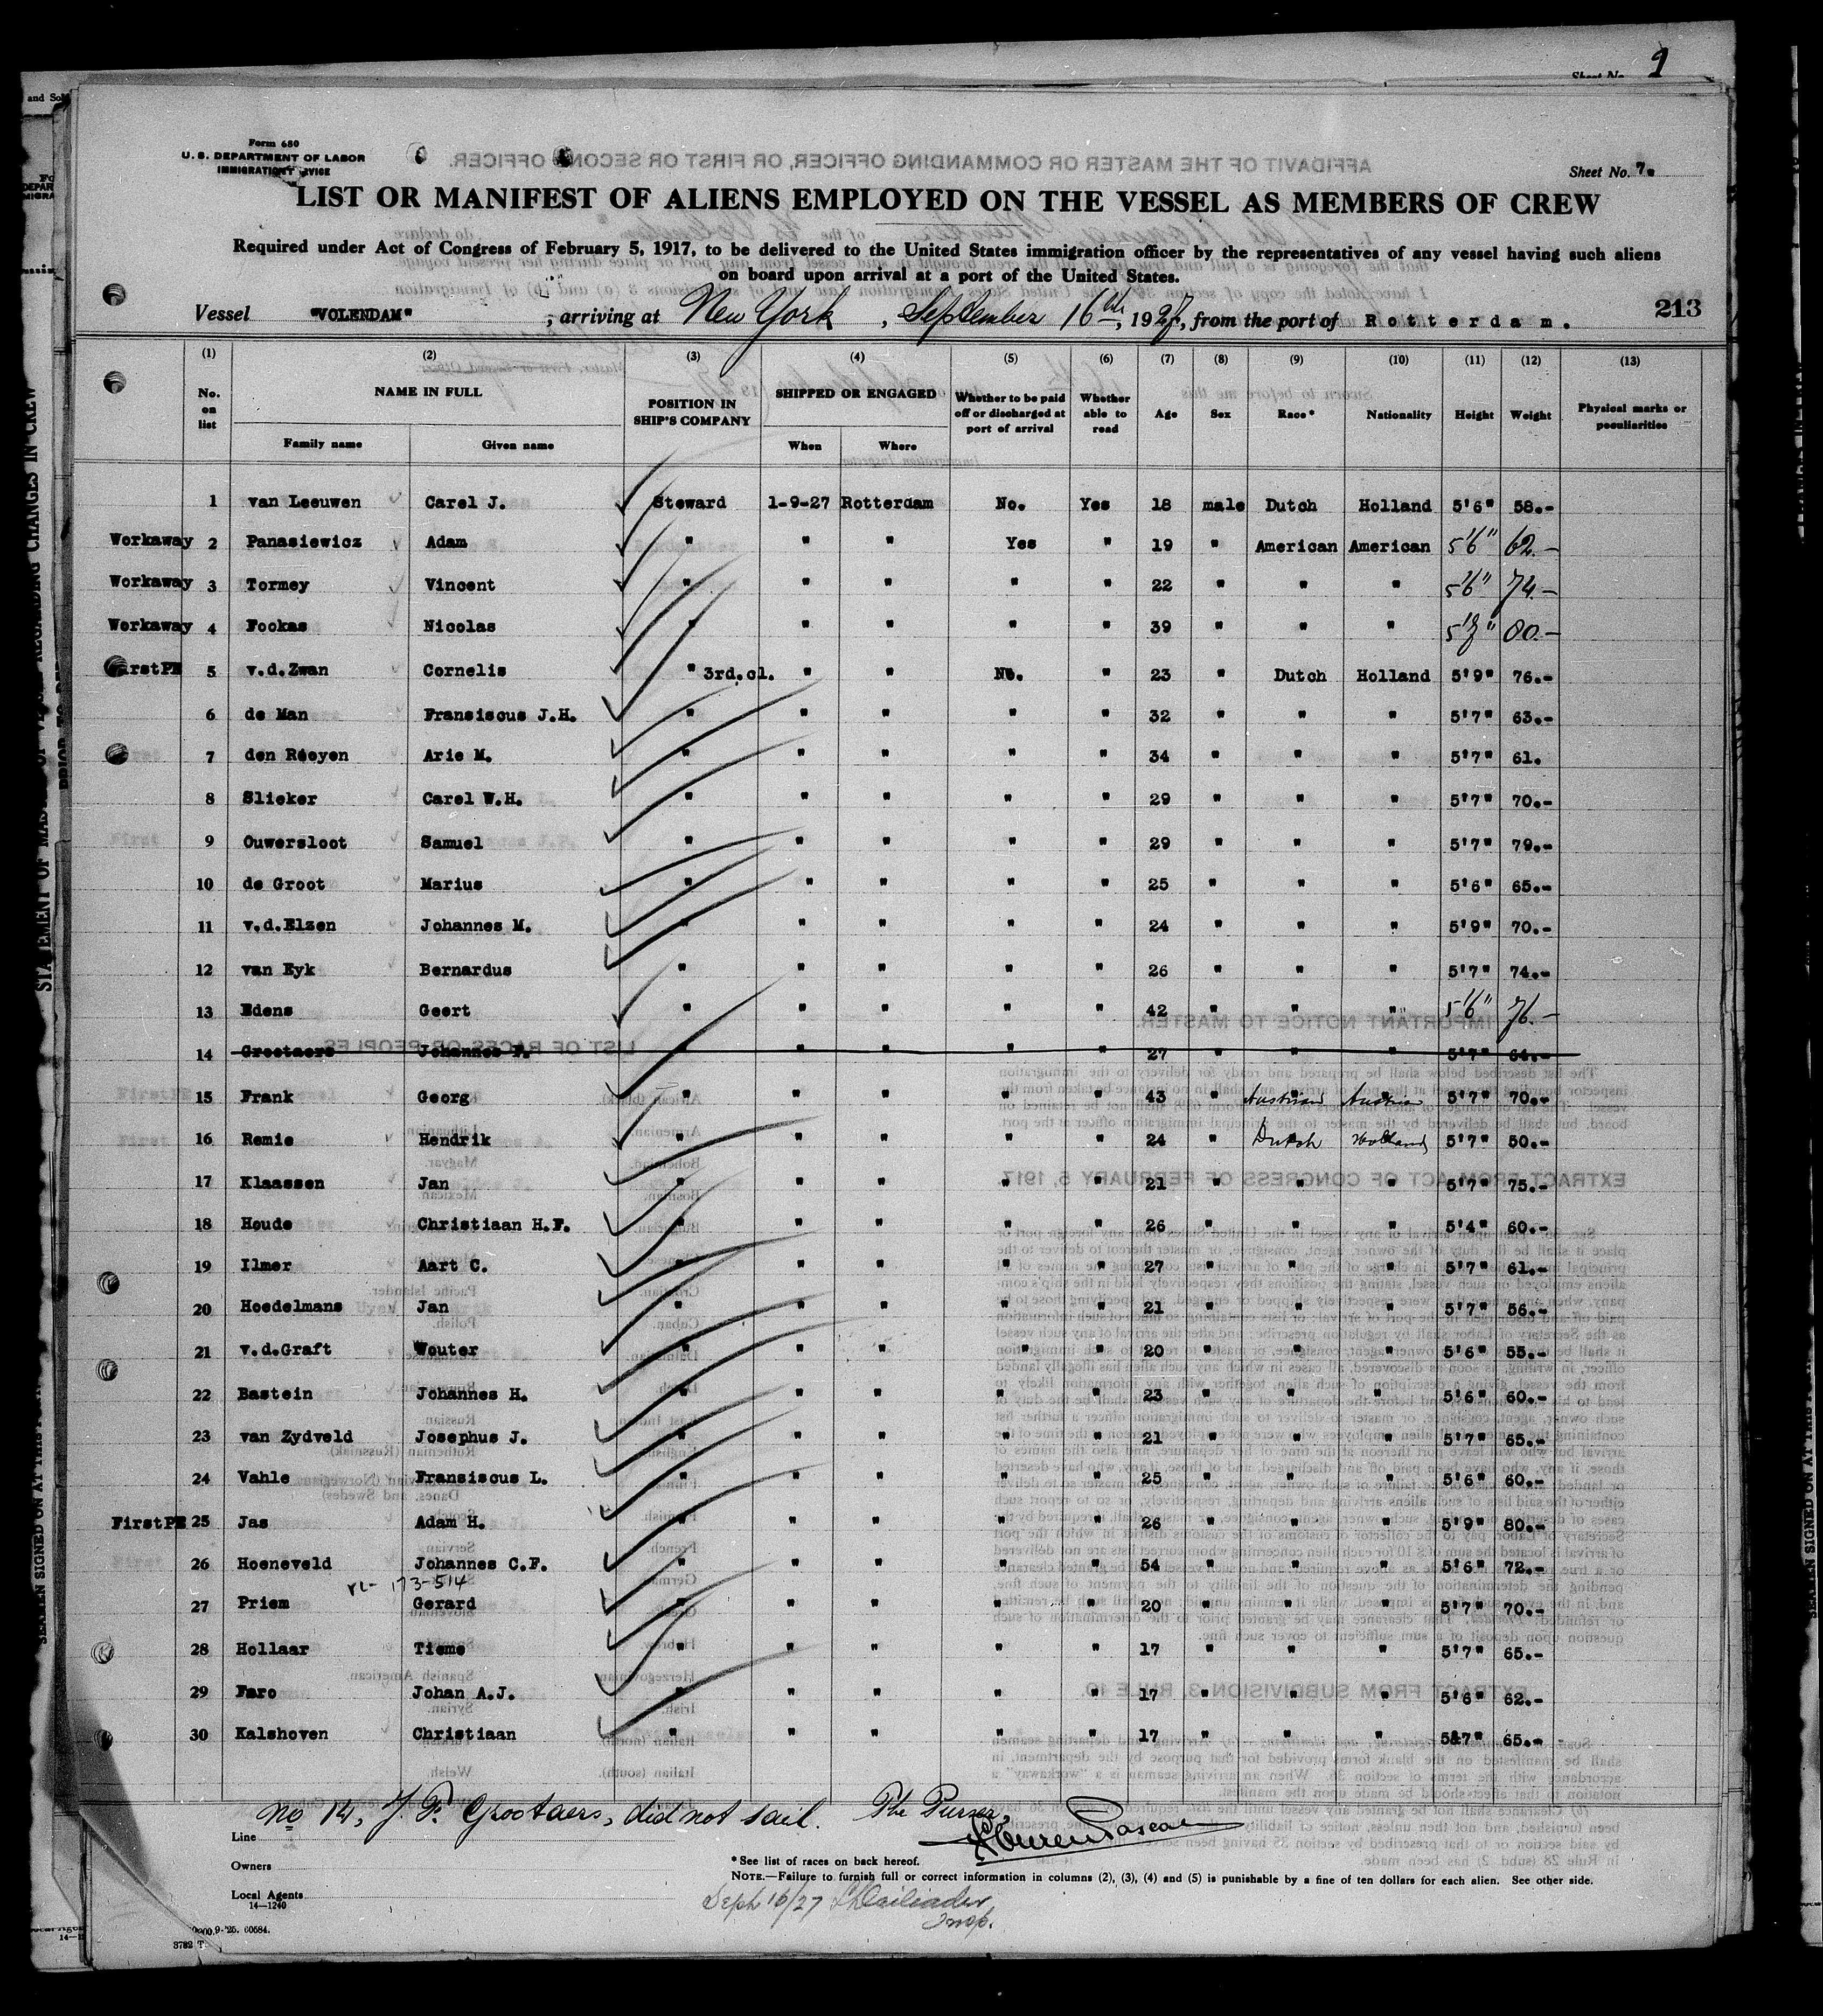 Sheet No. 9
Form 680
U. S. DEPARTMENT OF LABOR
IMMIGRATION SERVICE
Sheet No. 7.
LIST OR MANIFEST OF ALIENS EMPLOYED ON THE VESSEL AS MEMBERS OF CREW
Required under Act of Congress of February 5, 1917, to be delivered to the United States immigration officer by the representatives of any vessel having such aliens
on board upon arrival at a port of the United States.
Vessel "VOLENDAM", arriving at New York, September 16th, 1927, from the port of Rotterdam.
213
(1) (2) (3) (4) (5) (6) (7) (8) (9) (10) (11) (12) (13)
No. on list NAME IN FULL Family name Given name POSITION IN SHIP'S COMPANY SHIPPED OR ENGAGED When Where Whether to be paid off or discharged at port of arrival Whether able to read Age Sex Race* Nationality Height Weight Physical marks or peculiarities
1 van Leeuwen Carel J. Steward 1-9-27 Rotterdam No. Yes 18 male Dutch Holland 5'6" 58.-
Workaway 2 Panasiewicz Adam " " " Yes " 19 " American American 5'6" 62.-
Workaway 3 Tormey Vincent " " " " " 22 " " " 5'6" 74.-
Workaway 4 Fookas Nicolas " " " " " 39 " " " 80.-
FirstPE 5 v.d.Zwan Cornelis " 3rd.cl. " " No. " 23 " Dutch Holland 5'9" 76.-
6 de Man Fransiscus J.H. " " " " " 32 " " " 5'7" 63.-
7 den Reeyen Arie M. " " " " " 34 " " " 5'7" 61.
8 Slieker Carel W.H. " " " " " 29 " " " 5'7" 70.-
9 Ouwersloot Samuel " " " " " 29 " " " 5'7" 79.-
10 de Groot Marius " " " " " 25 " " " 5'6" 65.-
11 v.d.Elzen Johannes M. " " " " " 24 " " " 5'9" 70.-
12 van Eyk Bernardus " " " " " 26 " " " 5'7" 74.-
13 Edens Geert " " " " " 42 " " " 5'6" 76.-
14 Grootaers Johannes F. " " " " " 27 " " " 5'7" 64.-
15 Frank Georg " " " " " 43 " Austrian Austria 5'7" 70.-
16 Remie Hendrik " " " " " 24 " Dutch Holland 5'7" 50.-
17 Klaassen Jan " " " " " 21 " " " 5'7" 75.-
18 Houde Christiaan H.F. " " " " " 26 " " " 5'4" 60.-
19 Ilmer Aart C. " " " " " 27 " " " 5'7" 61.-
20 Hoedelmans Jan " " " " " 21 " " " 5'7" 56.-
21 v.d.Graft Wouter " " " " " 20 " " " 5'6" 55.-
22 Bastein Johannes H. " " " " " 23 " " " 5'6" 60.-
23 van Zydveld Josephus J. " " " " " 21 " " " 5'7" 65.-
24 Vahle Fransiscus L. " " " " " 25 " " " 5'6" 60.-
FirstPE 25 Jas Adam H. " " " " " 26 " " " 5'9" 80.-
26 Hoeneveld Johannes C.F. " " " " " 54 " " " 5'6" 72.-
173-514
27 Priem Gerard " " " " " 20 " " " 5'7" 70.-
28 Hollaar Tieme " " " " " 17 " " " 5'7" 65.-
29 Faro Johan A.J. " " " " " 17 " " " 5'6" 62.-
30 Kalshoven Christiaan " " " " " 17 " " " 5&7" 65.-
no 14, J. F. Grootaers, did not sail. The Purser,
Line
Owners
* See list of races on back hereof.
NOTE.—Failure to furnish full or correct information in columns (2), (3), (4) and (5) is punishable by a fine of ten dollars for each alien. See other side.
Local Agents
14—1240
Sept 16/27
Insp.
3782 T